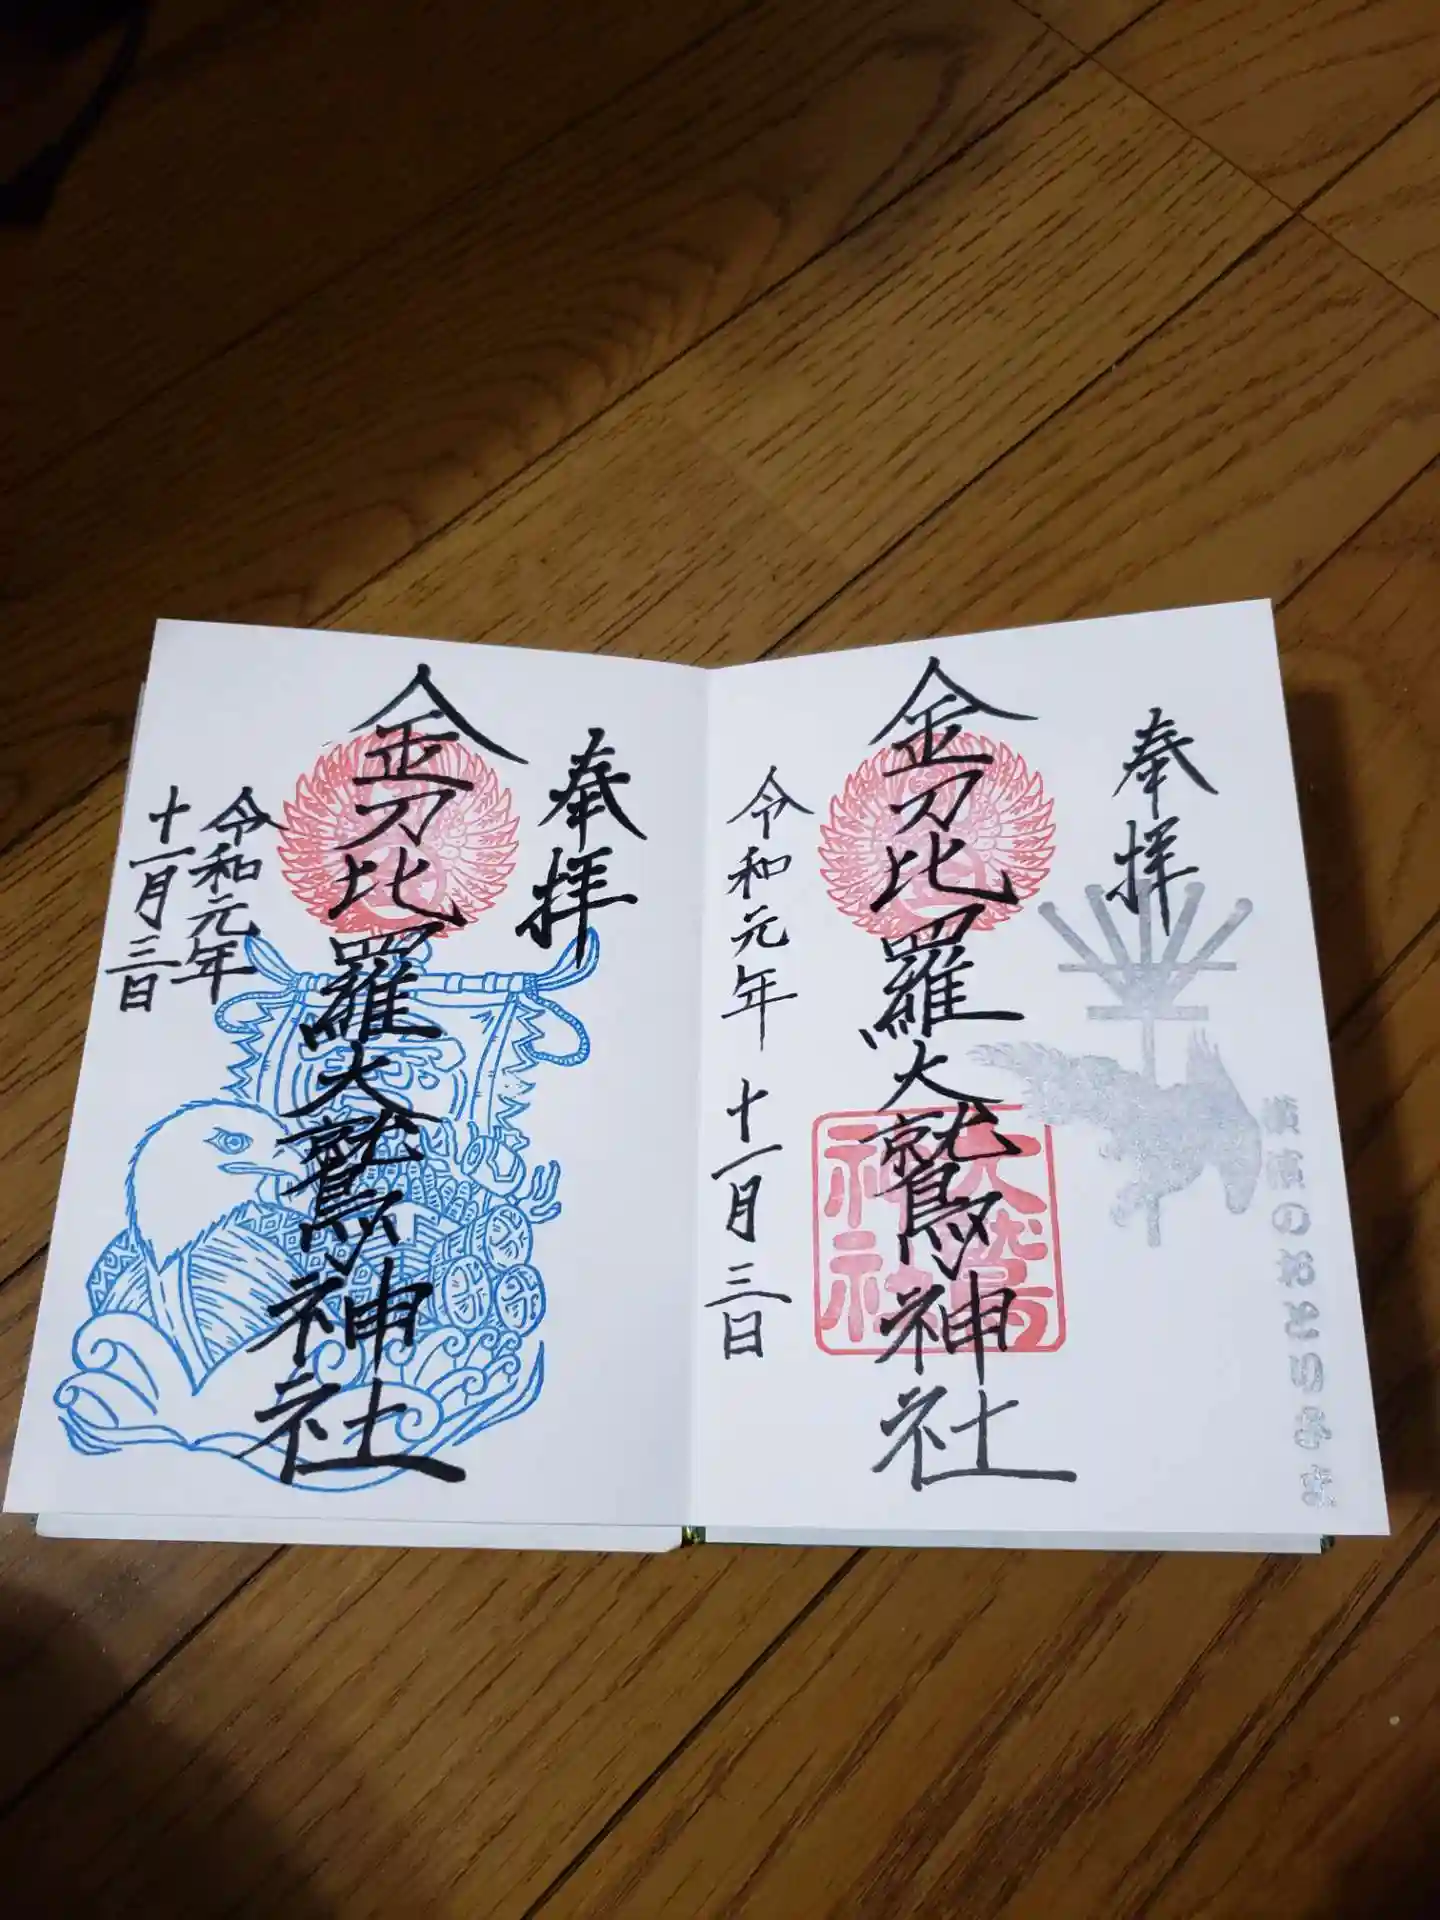 奉拝
金刀比羅大鷲神社
令和元年十一月三日
大鷲神社
横濱のおとりさま
奉拝
金刀比羅大鷲神社
令和元年
十一月三日